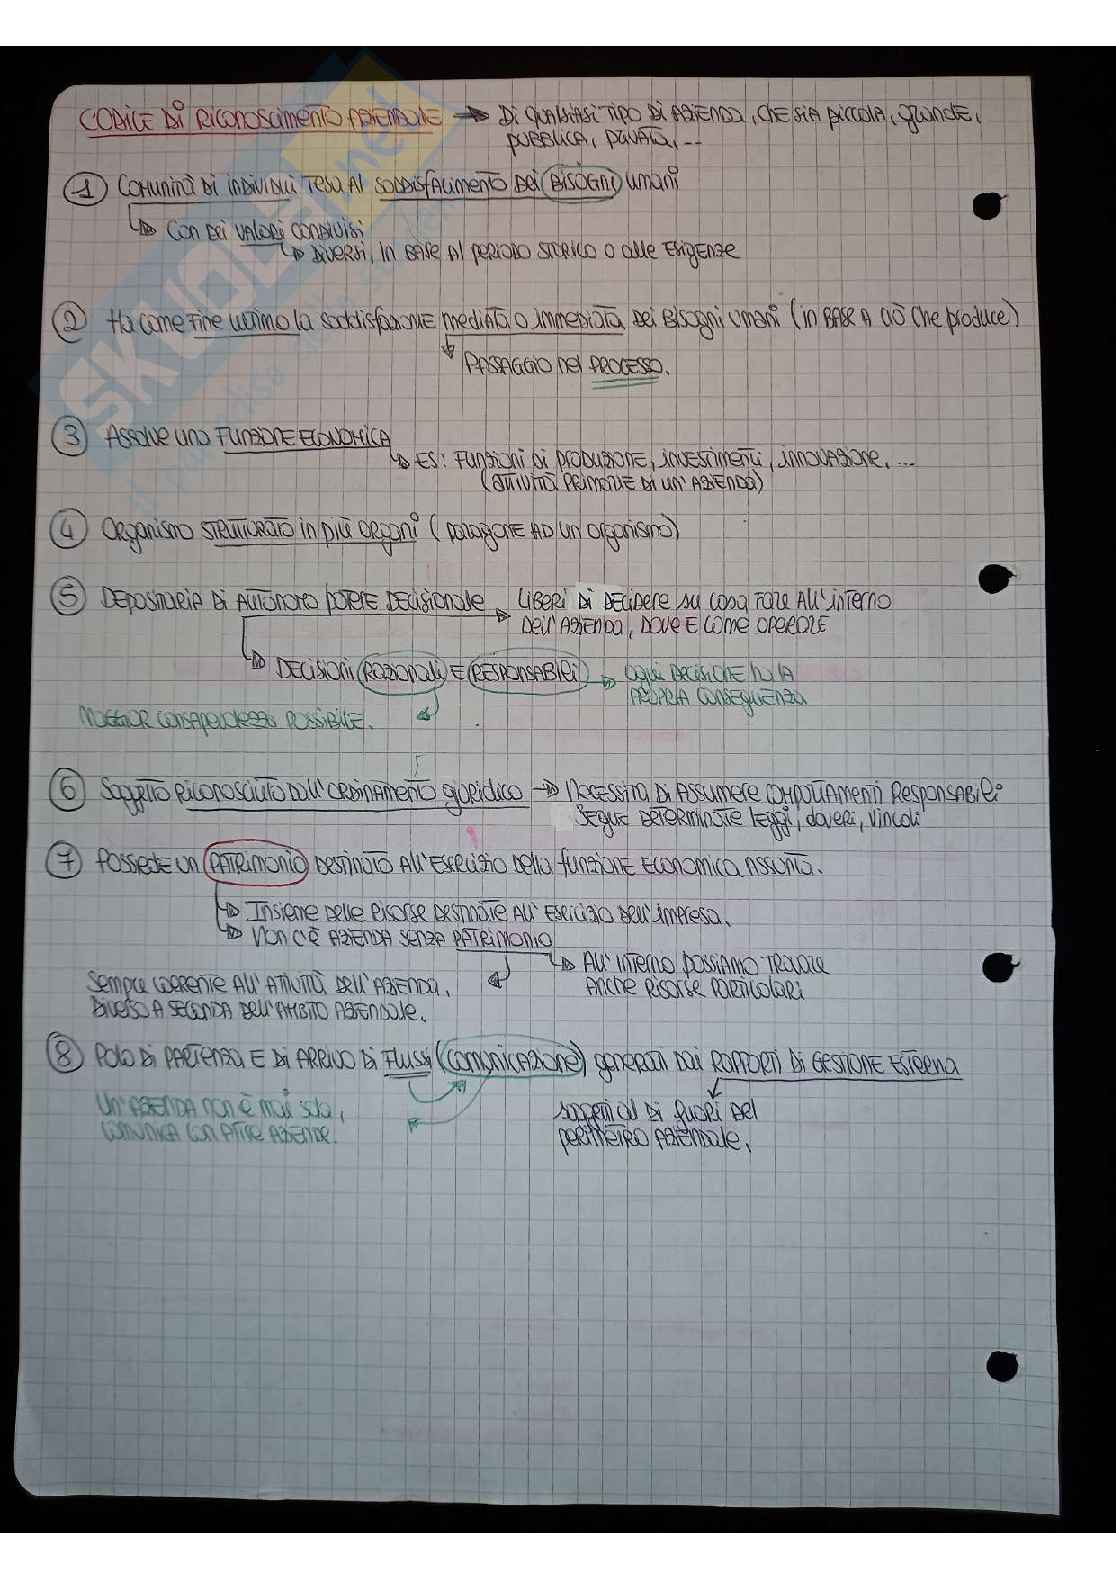 CODICE DI RICONOSCIMENTO AZIENDALE → DI QUALSIASI TIPO DI AZIENDA, CHE SIA PICCOLA, grande,
PUBBLICA, PRIVATA, ...
1 COMUNITÀ DI INDIVIDUI TESA AL SODDISFACIMENTO DEI BISOGNI UMANI
CON DEI VALORI CONDIVISI
DIVERSI IN BASE AL PERIODO STORICO O alle ESIGENZE
2 Ha come FINE ULTIMO la soddisfazione mediata o immediata DEI BISOGNI UMANI (IN BASE A CIÒ CHE produce)
PASSAGGIO nel PROCESSO.
3 Assolve una FUNZIONE ECONOMICA
ES: FUNZIONI DI PRODUZIONE, investimenti, innovazione, ...
(ATTIVITÀ PRIMARIE DI UN'AZIENDA)
4 ORGANISMO STRUTTURATO in più organi (paragone AD UN ORGANISMO)
5 DEPOSITARIA DI AUTONOMO POTERE DECISIONALE → LIBERI DI DECIDERE su cosa fare ALL'INTERNO
DELL'AZIENDA, DOVE E COME OPERARE
DECISIONI RAZIONALI E RESPONSABILI → ogni DECISIONE ha la
PROPRIA conseguenza
MAGGIOR consapevolezza POSSIBILE.
6 Soggetto riconosciuto dall'ORDINAMENTO giuridico → Necessita DI ASSUMERE COMPORTAMENTI RESPONSABILI
SEGUE DETERMINATE leggi, doveri, vincoli
7 POSSIEDE UN PATRIMONIO DESTINATO ALL'ESERCIZIO DELLA funzione ECONOMICA ASSUNTA.
INSIEME DELLE RISORSE DESTINATE ALL'ESERCIZIO DELL'IMPRESA.
NON C'È AZIENDA SENZA PATRIMONIO
ALL'INTERNO possiamo TROVARE
ANCHE RISORSE PARTICOLARI
Sempre COERENTE ALL'ATTIVITÀ DELL'AZIENDA.
DIVERSO A SECONDA DELL'AMBITO AZIENDALE.
8 POLO DI PARTENZA E DI ARRIVO DI FLUSSI (comunicazione) generati dai RAPPORTI DI GESTIONE ESTERNA
UN'AZIENDA non è mai sola,
COMUNICA CON ALTRE AZIENDE.
soggetti al DI fuori DEL
perimetro AZIENDALE.
SKUOLA.net